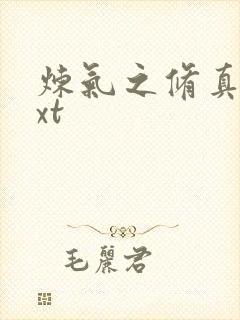 炼氣之脩真
xt
毛麗君